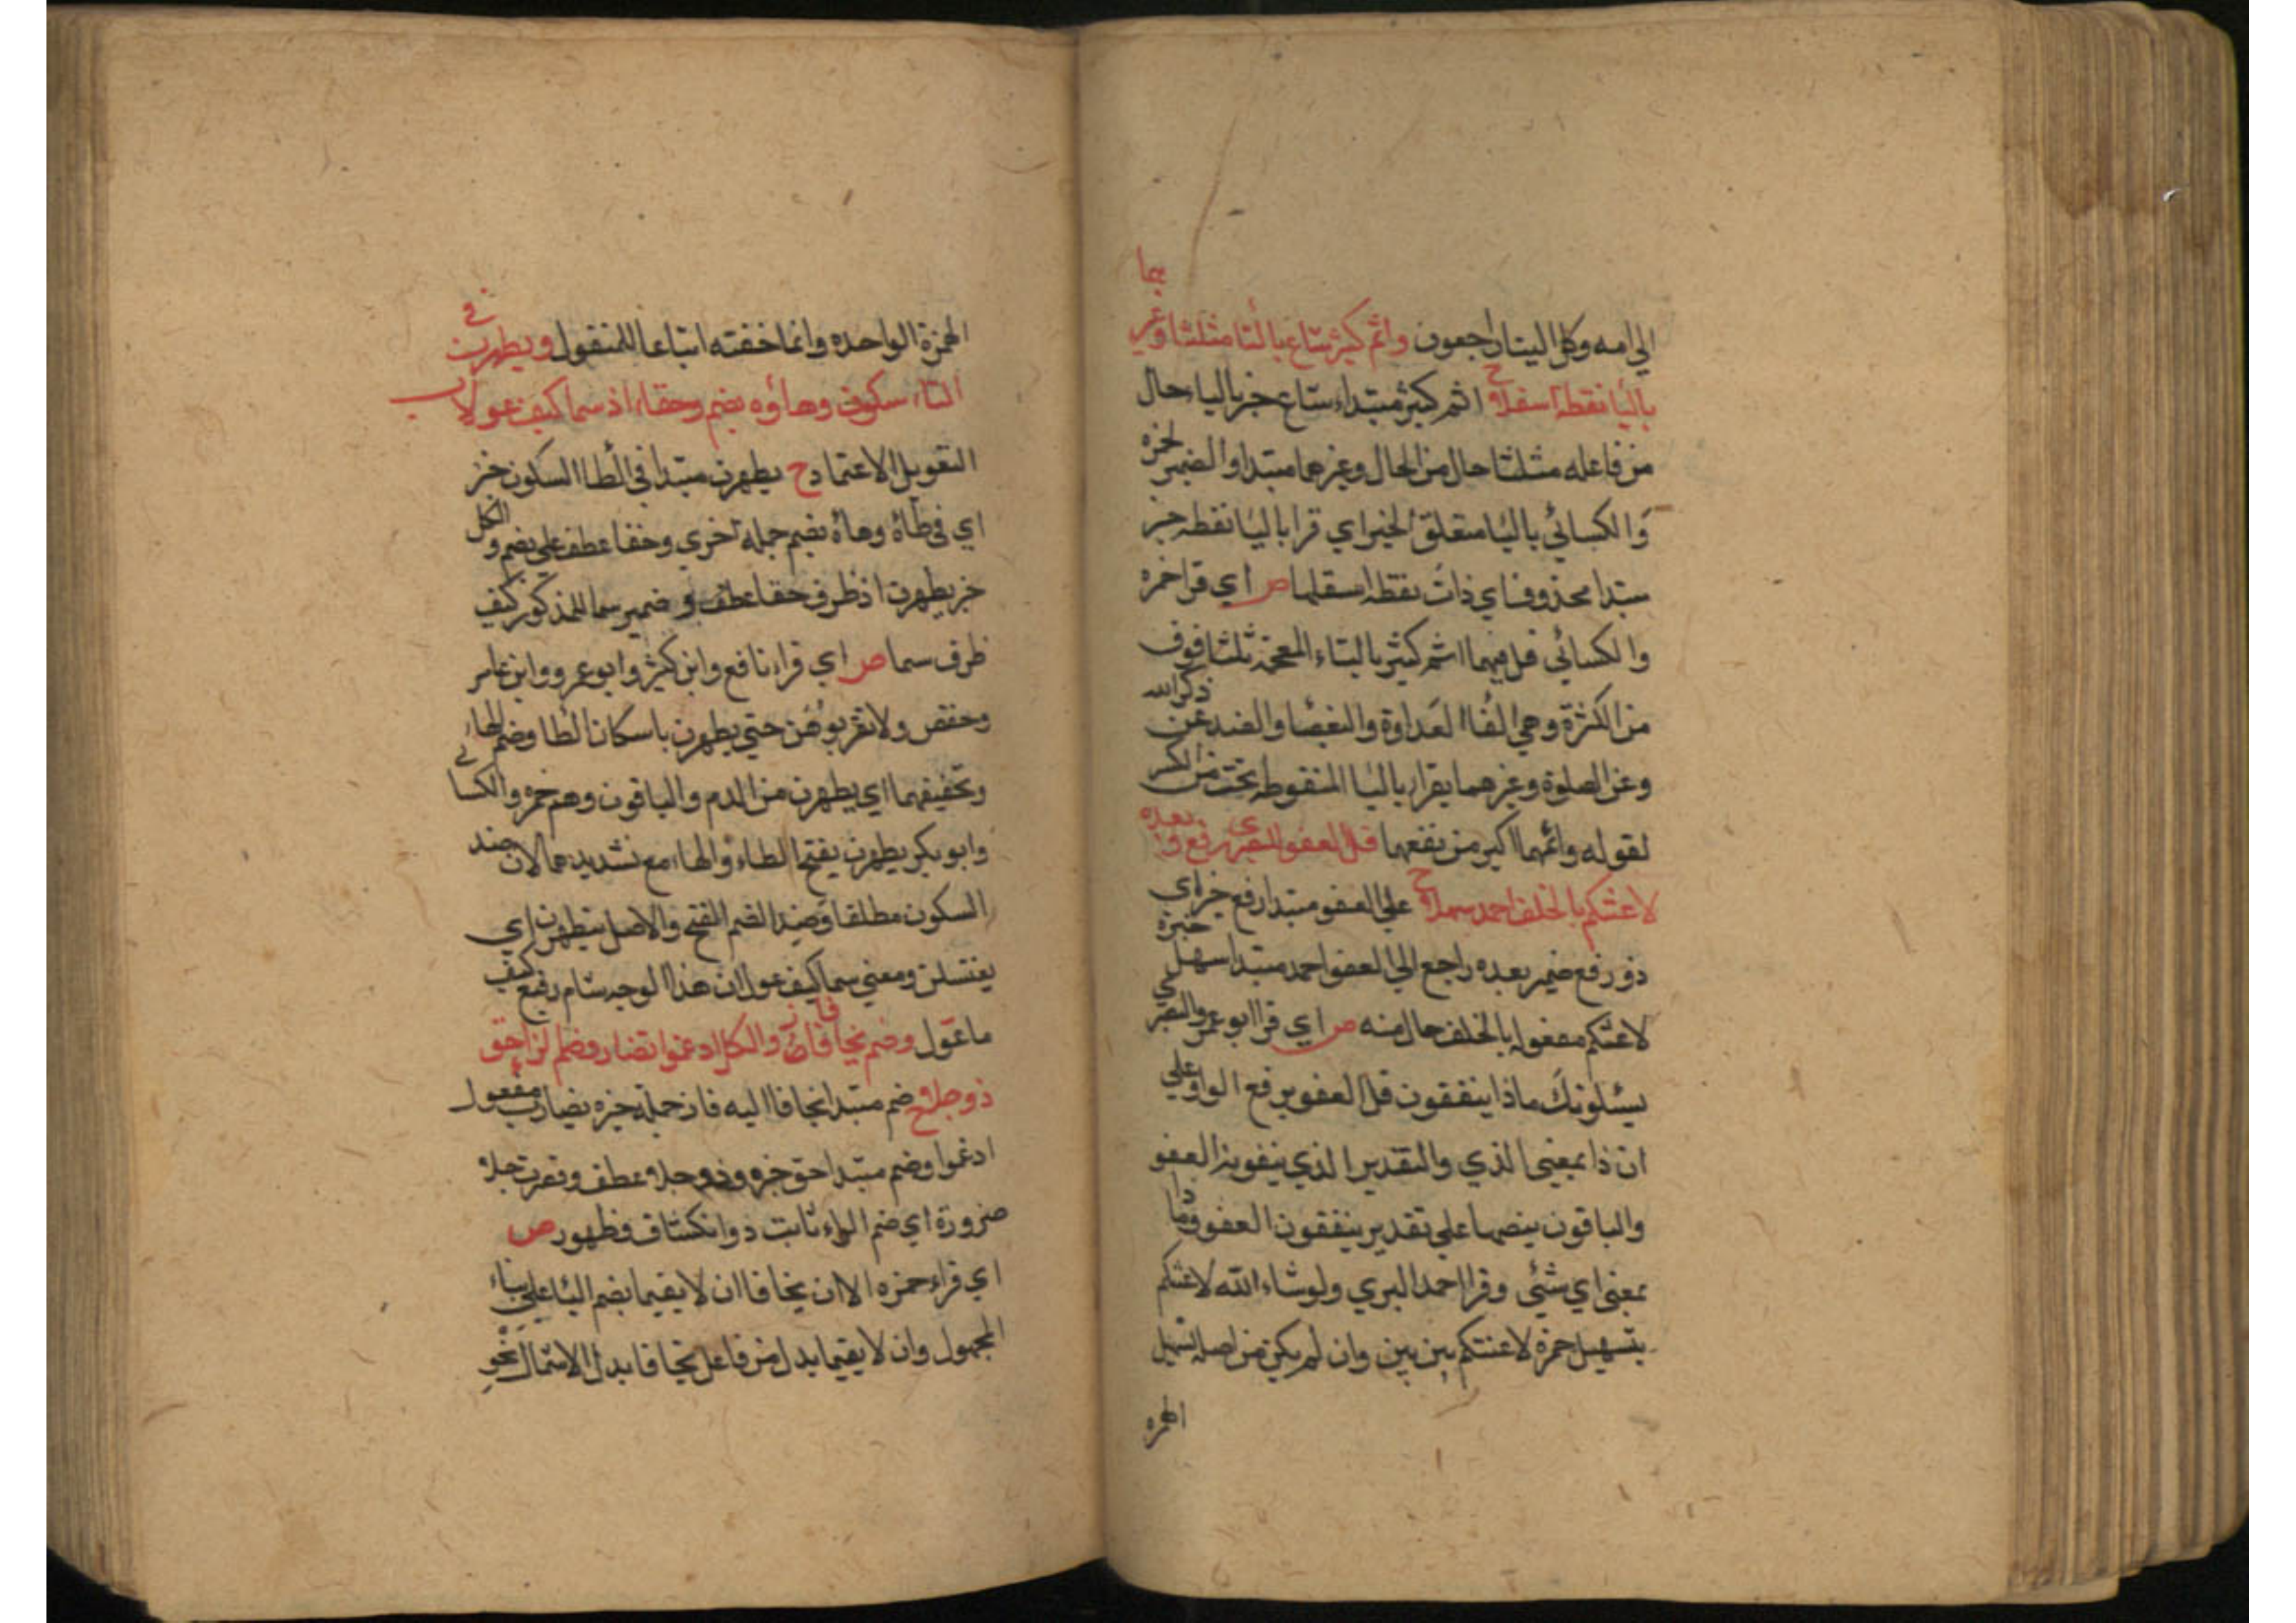 الي امه وكل الينا راجعون واثم كبير شاع بالثا مثلثا وغيرهما
بالبا نقطة اسفلا ح اثم كبير مبتدا شاع خبر باليا حال
من فاعله مثلثا حال من الحال وغيرهما مبتدا والضمير لحمزة
والكسائي بالبا متعلق الخبر اي قرا بالبا نقطة خبر
مبتدا محذوف اي ذات نقطة اسفلها ص اي قرا حمزه
والكسائي قل فيهما اثم كثير بالثاء المعجمة ثلثا فوق
من الكثرة وهي القا العداوة والبغضا والصد عن ذكر الله
وعن الصلوة وغيرهما يقرا بالبا المنقوطة تحت من الكبر
لقوله واثمهما اكبر من نفعهما قل العفو للبصري رفع وبعده
لاعنتكم بالخلف احمد سهلا ح علي العفو مبتدا رفع خبر اي
ذو رفع ضمير بعده راجع الي العفو احمد مبتدا سهل خبره
لاعنتكم مفعوله بالخلف حال منه ص اي قرا ابو عمرو البصري
يسئلونك ماذا ينفقون قل العفو برفع الواو علي
ان ذا بمعني الذي والتقدير الذي ينفقونه العفو
والباقون بنصبها علي تقدير ينفقون العفو وماذا
بمعني اي شئي وقرا احمد البزي ولو شاء الله لاعنتكم
بتسهيل همزة لاعنتكم بين بين وان لم يكن من اصله تسهيل
الهمزه
الهمزة الواحده وانما خففته اتباعا للمنقول ويطهرن في
الطاء سكون وهاؤه يضم وخفا اذ سما كيف عولا ب
التعويل الاعتماد ح يطهرن مبتدا في الطا السكون خبر
اي في طاه وهاه يضم جملة اخري وخفا عطف علي يضم والكل
خبر يطهرن اذ ظرف خفا عطف و ضمير سما للمذكور كيف
ظرف سما ص اي قراء نافع وابن كثير وابو عمرو وابن عامر
وحفص ولا تقربوهن حتي يطهرن باسكان الطا وضم الها
وتخفيفهما اي يطهرن من الدم والباقون وهم حمزه والكسائي
وابو بكر يطهرن بفتح الطاء والهاء مع تشديدهما لان ضد
السكون مطلقا وضد الضم الفتح والاصل يتطهرن اي
يغتسلن ومعني سما كيف عول ان هذا الوجه سام رفيع كيف
ما عول وضم يخافا فاز والكل ادغموا تضارر وضم الراء حق
ذو جلا ح ضم مبتدا يخافا اليه فاز جملة خبره تضارر مفعول
ادغموا وضم مبتدا حق خبره وذو جلا عطف وقصرت جلا
ضرورة اي ضم الراء ثابت ذو انكشاف وظهور ص
اي قراء حمزه الا ان يخافا ان لا يقيما بضم اليا علي بناء
المجهول وان لا يقيما بدل من فاعل يخافا بدل الاشتمال نحو